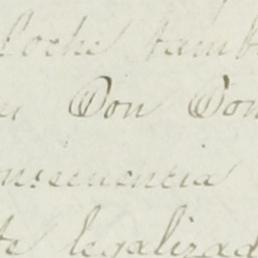 Noche tamb
Don Don
nsecuencia
te legalizad